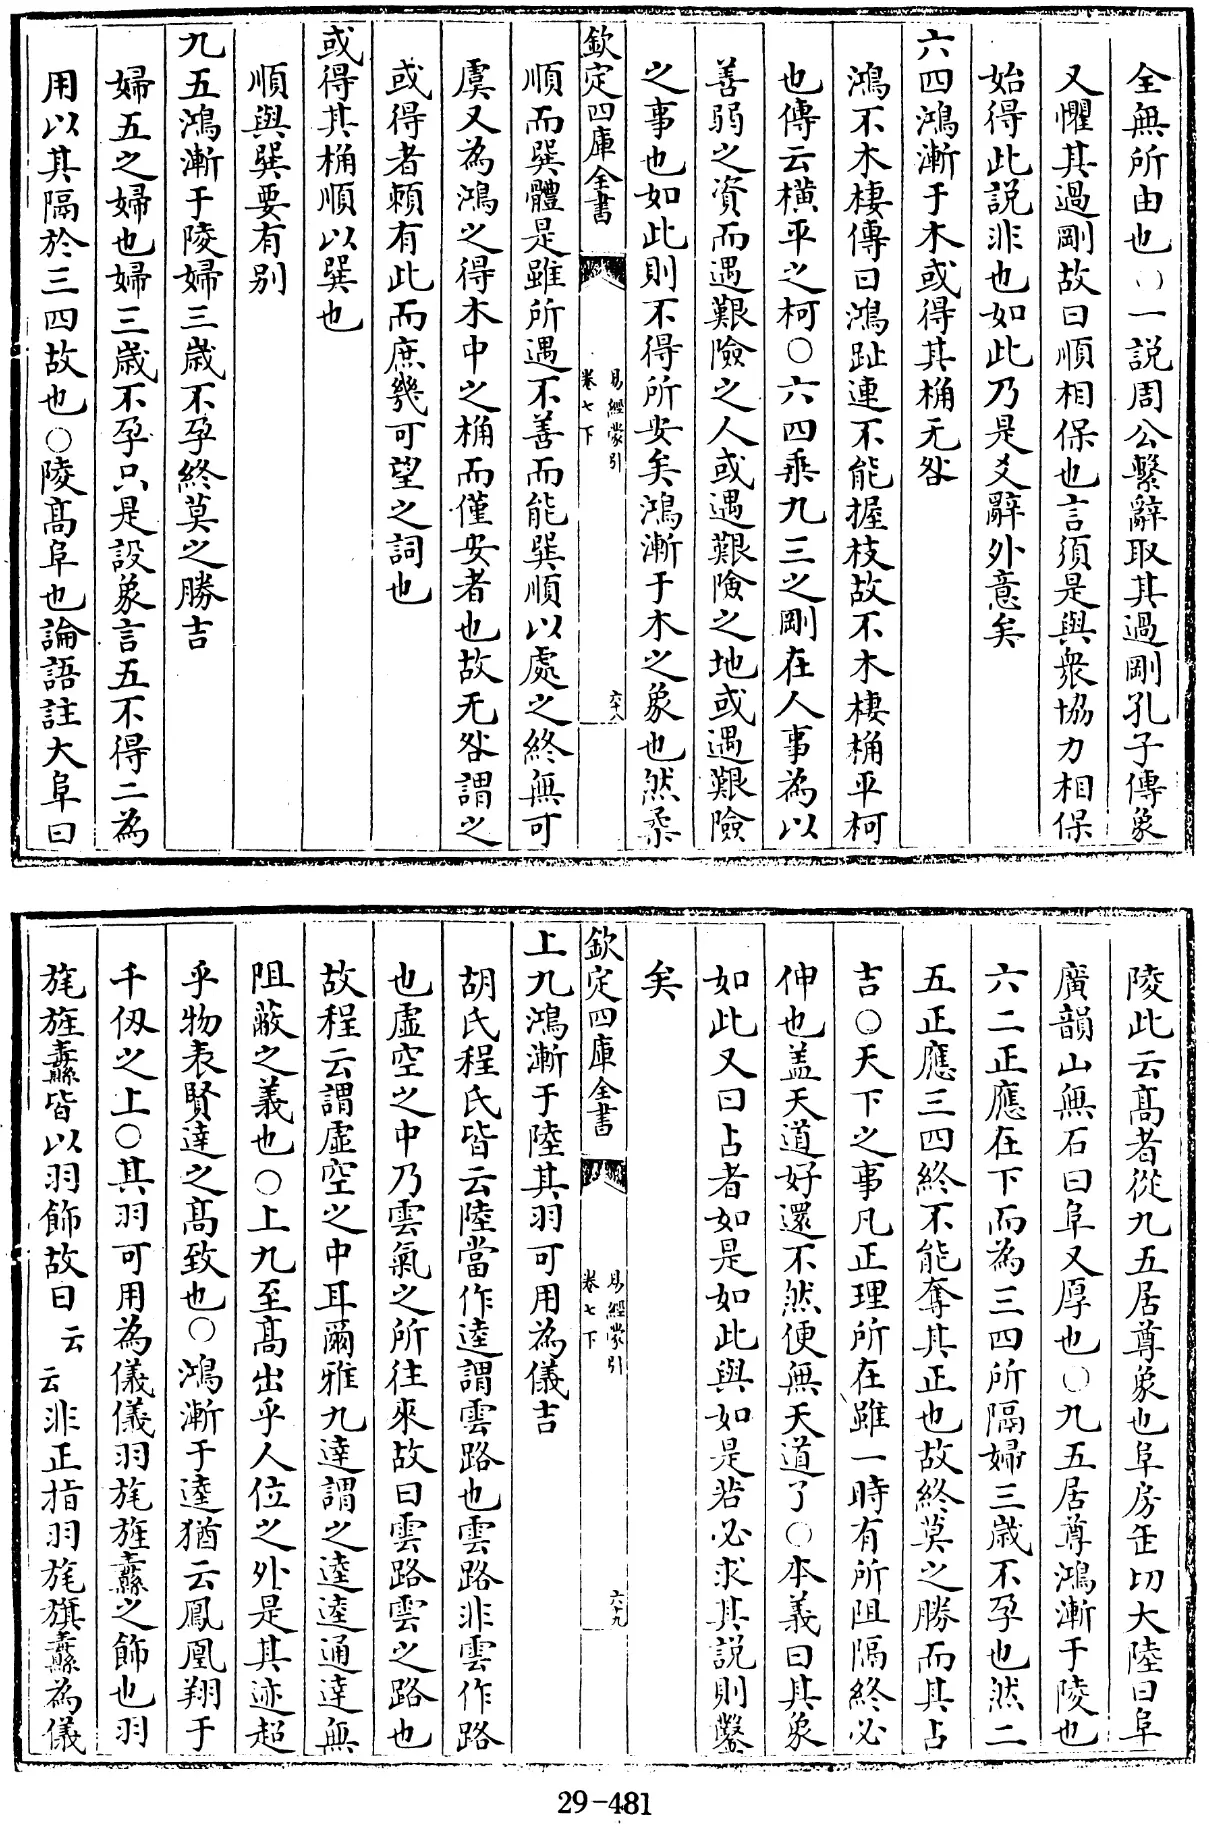 全無所由也○一説周公繫辭取其過剛孔子傳象
又懼其過剛故曰順相保也言須是與衆協力相保
始得此説非也如此乃是爻辭外意矣
六四鴻漸于木或得其桷无咎
鴻不木棲傳曰鴻趾連不能握枝故不木棲桷平柯
也傳云橫平之柯○六四乘九三之剛在人事為以
善弱之資而遇艱險之人或遇艱險之地或遇艱險
之事也如此則不得所安矣鴻漸于木之象也然柔
欽定四庫全書
易經蒙引
卷七下
六十八
順而巽體是雖所遇不善而能巽順以處之終無可
虞又為鴻之得木中之桷而僅安者也故无咎謂之
或得者頼有此而庶幾可望之詞也
或得其桷順以巽也
順與巽要有别
九五鴻漸于陵婦三歳不孕終莫之勝吉
婦五之婦也婦三歳不孕只是設象言五不得二為
用以其隔於三四故也○陵高阜也論語註大阜曰
陵此云髙者從九五居尊象也阜房缶切大陸曰阜
廣韻山無石曰阜又厚也○九五居尊鴻漸于陵也
六二正應在下而為三四所隔婦三歳不孕也然二
五正應三四終不能奪其正也故終莫之勝而其占
吉○天下之事凡正理所在雖一時有所阻隔終必
伸也盖天道好還不然便無天道了○本義曰其象
如此又曰占者如是如此與如是若必求其説則鑿
矣
欽定四庫全書
易經蒙引
卷七下
六十九
上九鴻漸于陸其羽可用為儀吉
胡氏程氏皆云陸當作逵謂雲路也雲路非雲作路
也虛空之中乃雲氣之所往來故曰雲路雲之路也
故程云謂虛空之中耳爾雅九達謂之逵逵通達無
阻蔽之義也○上九至髙出乎人位之外是其迹超
乎物表賢達之髙致也○鴻漸于逵猶云鳳凰翔于
千仭之上○其羽可用為儀儀羽旄旌纛之飾也羽
旄旌纛皆以羽飾故曰云云非正指羽旄旗纛為儀
29-481